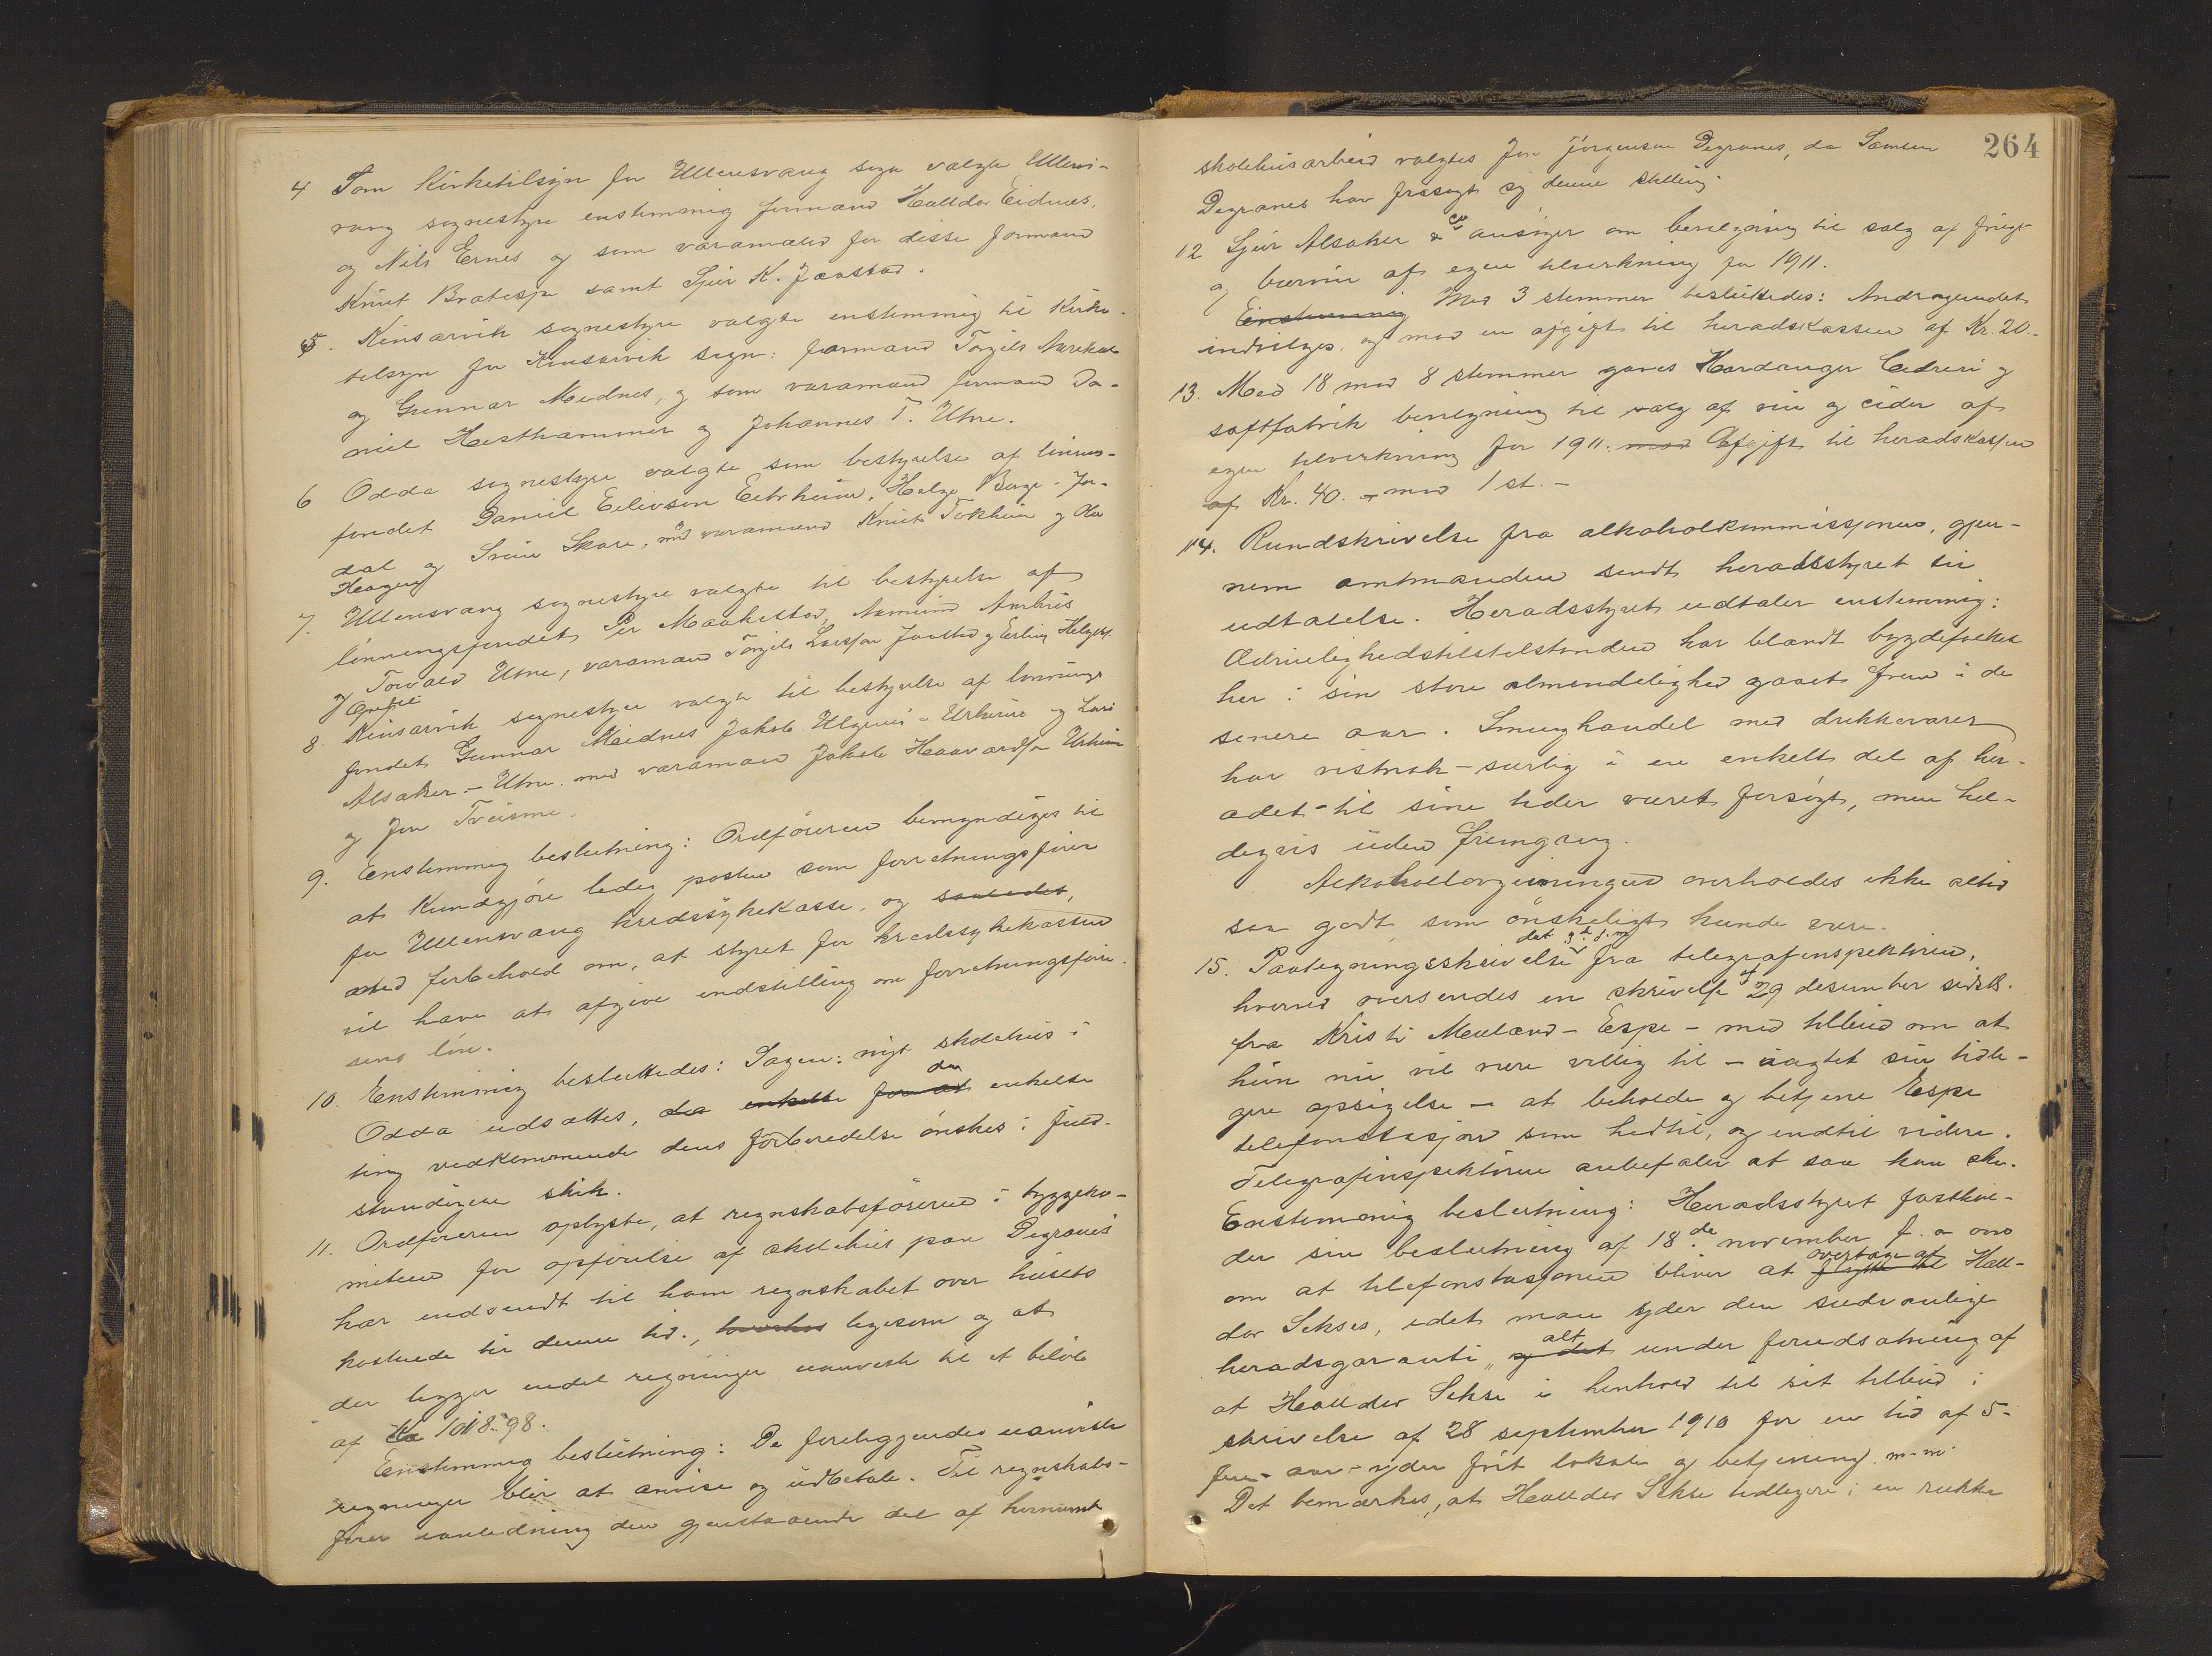 4 Som kirketilsyn for Ullensvang sogn valgte Ullens-
vang sognestyre enstemmig formand Halldor Eidnes,
og Nils Ernes og som varamænd for disse formand
Knut Bratespe samt Sjur K. Jaastad.
5. Kinsarvik sognestyre valgte enstemmig til kirke-
tilsyn for Kinsarvik sogn: formand Torgils
og Gunnar Meidnes, og som varamænd formand Da-
niel Hesthammer og Johannes T. Utne.
6 Odda sognestyre valgte som bestyrelse af lønnings-
fondet Daniel Eilivson Eitrheim, Helge Berge-Jor-
dal og Svein Skare, med varamænd Knut Tokheim og Ola
Haagens
7. Ullensvang sognestyre valgte til bestyrelse af
lønningsfondet Per Maakestad, Aamund Aarhus
og Torvald Utne, varamænd Torgils Larsson Jaastad og Erling Helgesen
Opedal
8. Kinsarvik sognestyre valgte til bestyrelse af lønnings
fondet Gunnar Meidnes Jakob Ulgenes-Urheim og Lars
Alsaker-Utne. med varamænd Jakob Haavardson Urheim
og Jon Tveisme.
9. Enstemmig beslutning: Ordføreren bemyndiges til
at kundgjøre ledig posten som forretningsfører
for Ullensvang kredssykekasse, og saaledes,
med forbehold om, at styret for kredssykekassen
vil have at afgive indstilling om forretningsføre-
rens løn.
10. Enstemmig besluttedes: Sagen: nyt skolehus i
Odda udsættes, da enkelte for at da enkelte
ting vedkommende dens forberedelse ønskes i fuld-
stendigere skik.
11. Ordføreren oplyste, at regnskabsføreren i byggeko-
miteen for opførelse af skolehus paa Degranes
har indsendt til ham regnskabet over husets
kostende til denne tid., hvorhos ligesom og at
der ligger endel regninger uanvist til et beløb
af Kr 1018.98.
Enstemmig beslutning: De foreliggende uanviste
regninger blir at anvise og udbetale. Til regnskabs-
fører i anledning den gjenstaaende del af hernævnt
264
skolehusarbeid valgtes Jon Jørgenson Degranes, da Samson
Degranes har frasagt sig denne stilling.
12 Sjur Alsaker ansøger om bevilgning til salg af frugt-
og bærvin af egen tilvirkning for 1911.
Enstemmig Med 3 stemmer besluttedes: Andragendet
indvilges og mod en afgift til heradskassen af Kr. 20.-
13. Med 18 mod 8 stemmer gaves Hardanger Cedreri og
saftfabrik bevilgning til salg af vin og cider af
egen tilvirkning for 1911. mod Afgift til heradskassen
af Kr. 40. - mod 1 st. -
14. Rundskrivelse fra alkoholkommissjonen, gjen-
nem amtmanden sendt heradsstyret til
udtalelse. Heradsstyret udtaler enstemmig:
Ædruelighedstilstelstanden har blandt bygdefolket
her i sin store almendelighed gaaet frem i de
senere aar. Smughandel med drikkevarer
har vistnok - særlig i en enkelt del af her-
adet - til sine tider været forsøgt, men hel-
digvis uden fremgang.
Alkohollovgivningen overholdes ikke altid
saa godt, som ønskeligt kunde være.
15. Paategningsskrivelse dat 3. d.m. fra telegrafinspektøren,
hvorved oversendes en skrivelse af 29 desember sidstl.
fra Kristi Meland - Espe - med tilbud om at
hun nu vil være villig til - uagtet sin tidli-
gere opsigelse - at beholde og betjene Espe
telefonstasjon som hidtil, og indtil videre.
Telegrafinspektøren anbefaler at saa kan ske.
Enstemmig beslutning: Heradsstyret fasthol-
der sin beslutning af 18.de november f. a om
om at telefonstasjonen bliver at flytte til overtage af Hall-
dor Sekses, idet man yder den sedvanlige
heradsgaranti, og det alt under forudsætning af
at Halldor Sekse i henhold til sit tilbud i
skrivelse af 28 september 1910 for en tid af 5-
fem - aar - yder frit lokale og betjening m.m.
Det bemærkes, at Halldor Sekse tidligere i en række